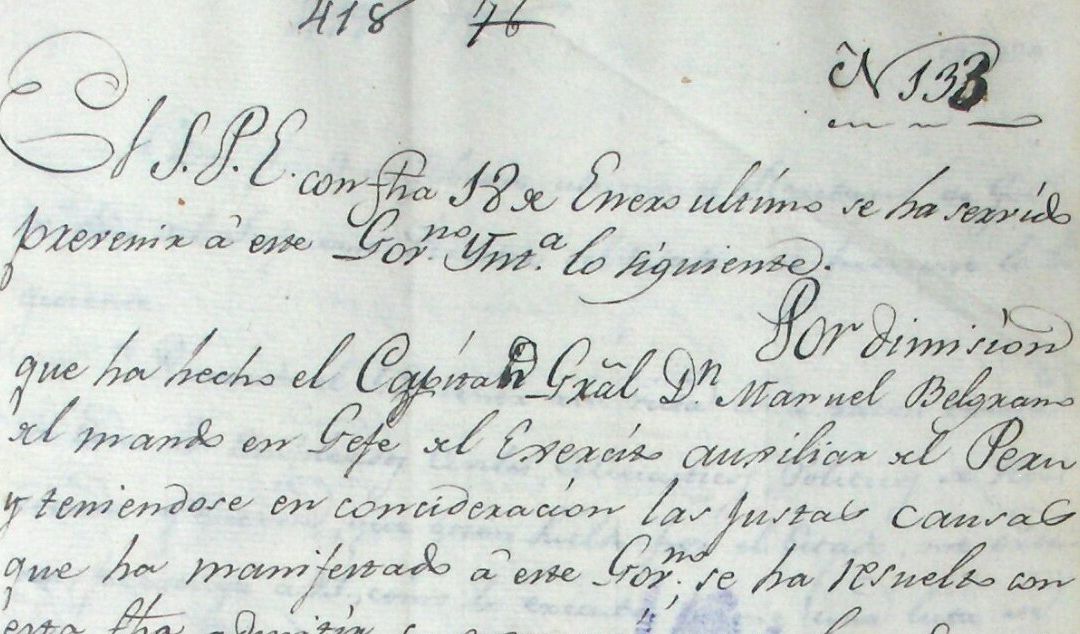 418 76
N 133
El S. P. E. con fha 18 de Enero ultimo se ha servido
prevenir â este Gov.no Ynt.a lo siguiente.
Por dimision
que ha hecho el Capitan Grãl D.n Manuel Belgrano
del mando en Gefe del Exercito auxiliar del Peru
y teniendose en concideracion las justas causas
que ha manifestado â este Gov.no, se ha resuelto con
esta fha admitir